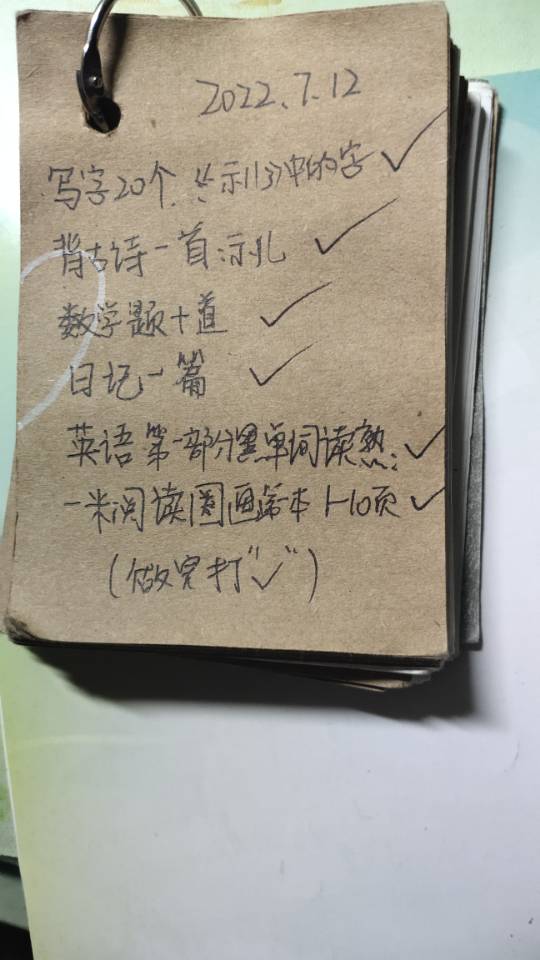 2022.7.12
写字20个《示儿》中的字 ✓
背古诗一首:示儿 ✓
数学题十道 ✓
日记一篇 ✓
英语第一部分单词读熟 ✓
一米阅读 本1-10页 ✓
(做完打"✓")